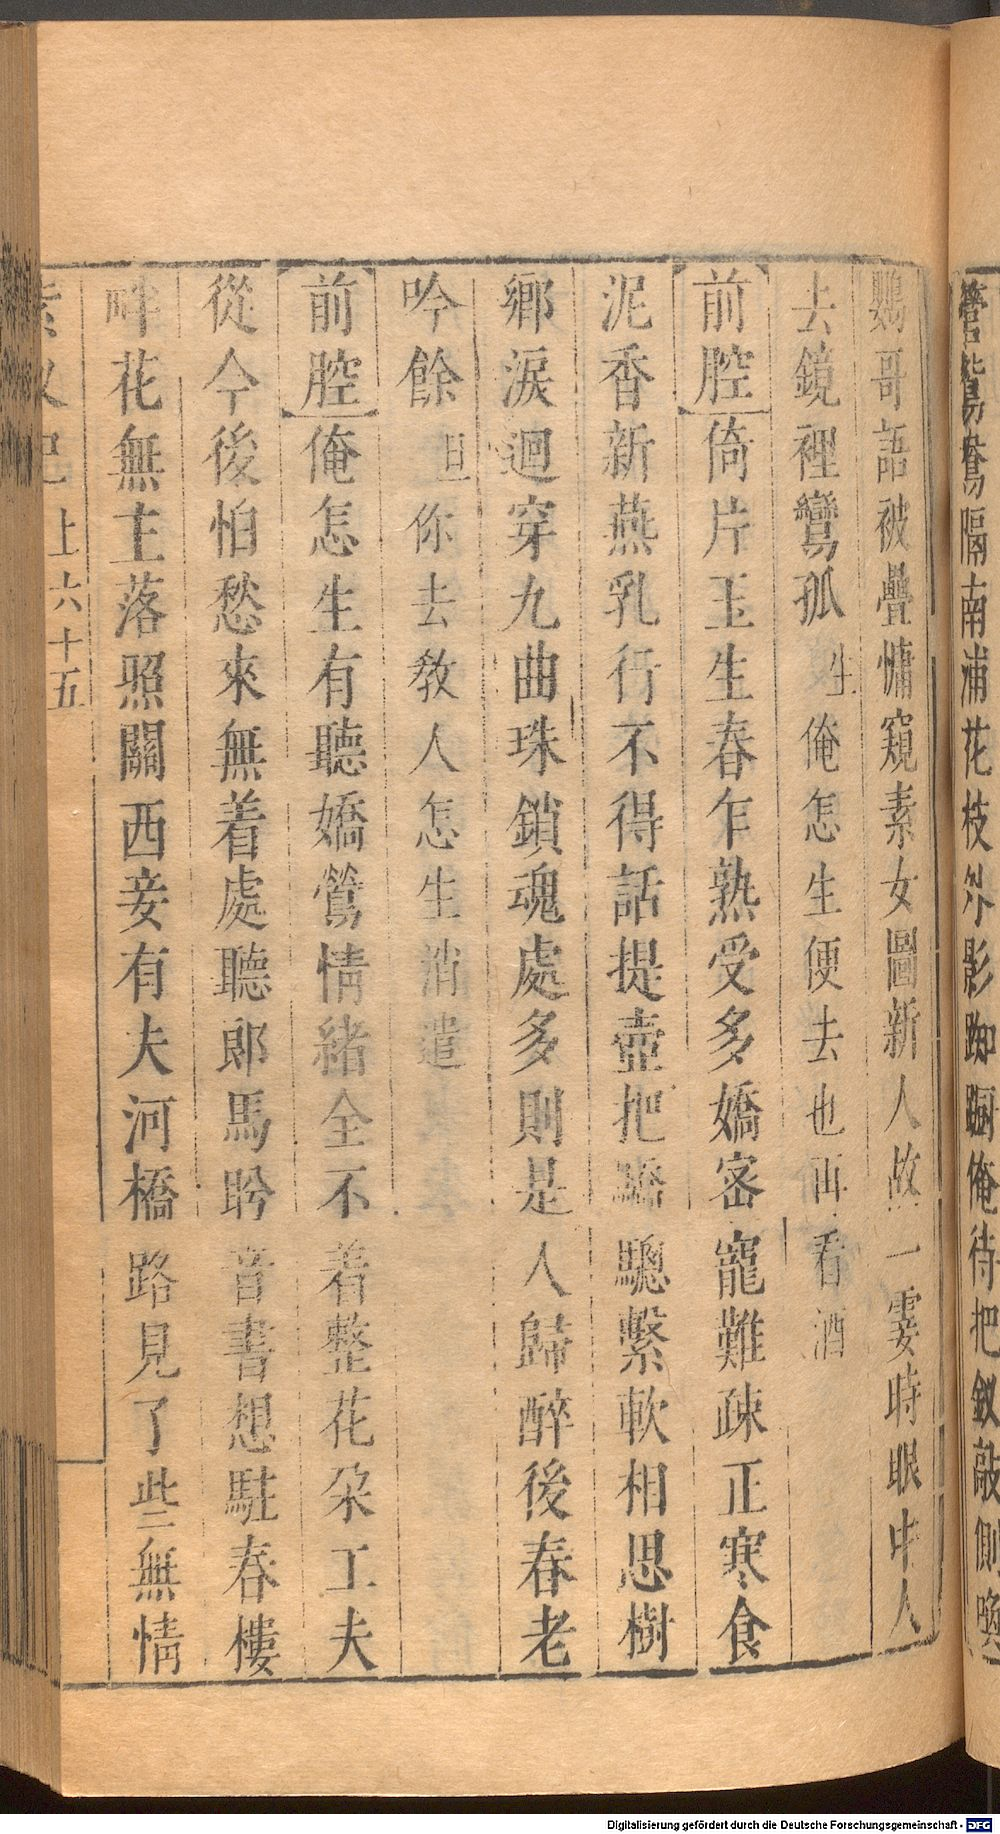 鶯鴛鴦隔南浦花枝外影踟蹰俺待把釵敲側喚
鸚哥語被疊慵窺素女圖新人故一霎時眼中人
去鏡裡鸞孤生俺怎生便去也再看酒
前腔倚片玉生春乍熟受多嬌密寵難疎正寒食
泥香新燕乳行不得話提壺把驕驄繫軟相思樹
鄉淚迴穿九曲珠鎖魂處多則是人歸醉後春老
吟餘旦你去教人怎生消遣
前腔俺怎生有聽嬌鶯情緒全不着整花朶工夫
從今後怕愁來無着處聽郎馬盻音書想駐春樓
畔花無主落照關西妾有夫河橋路見了些無情
紫釵記上六十五
Digitalisierung gefördert durch die Deutsche Forschungsgemeinschaft - DFG